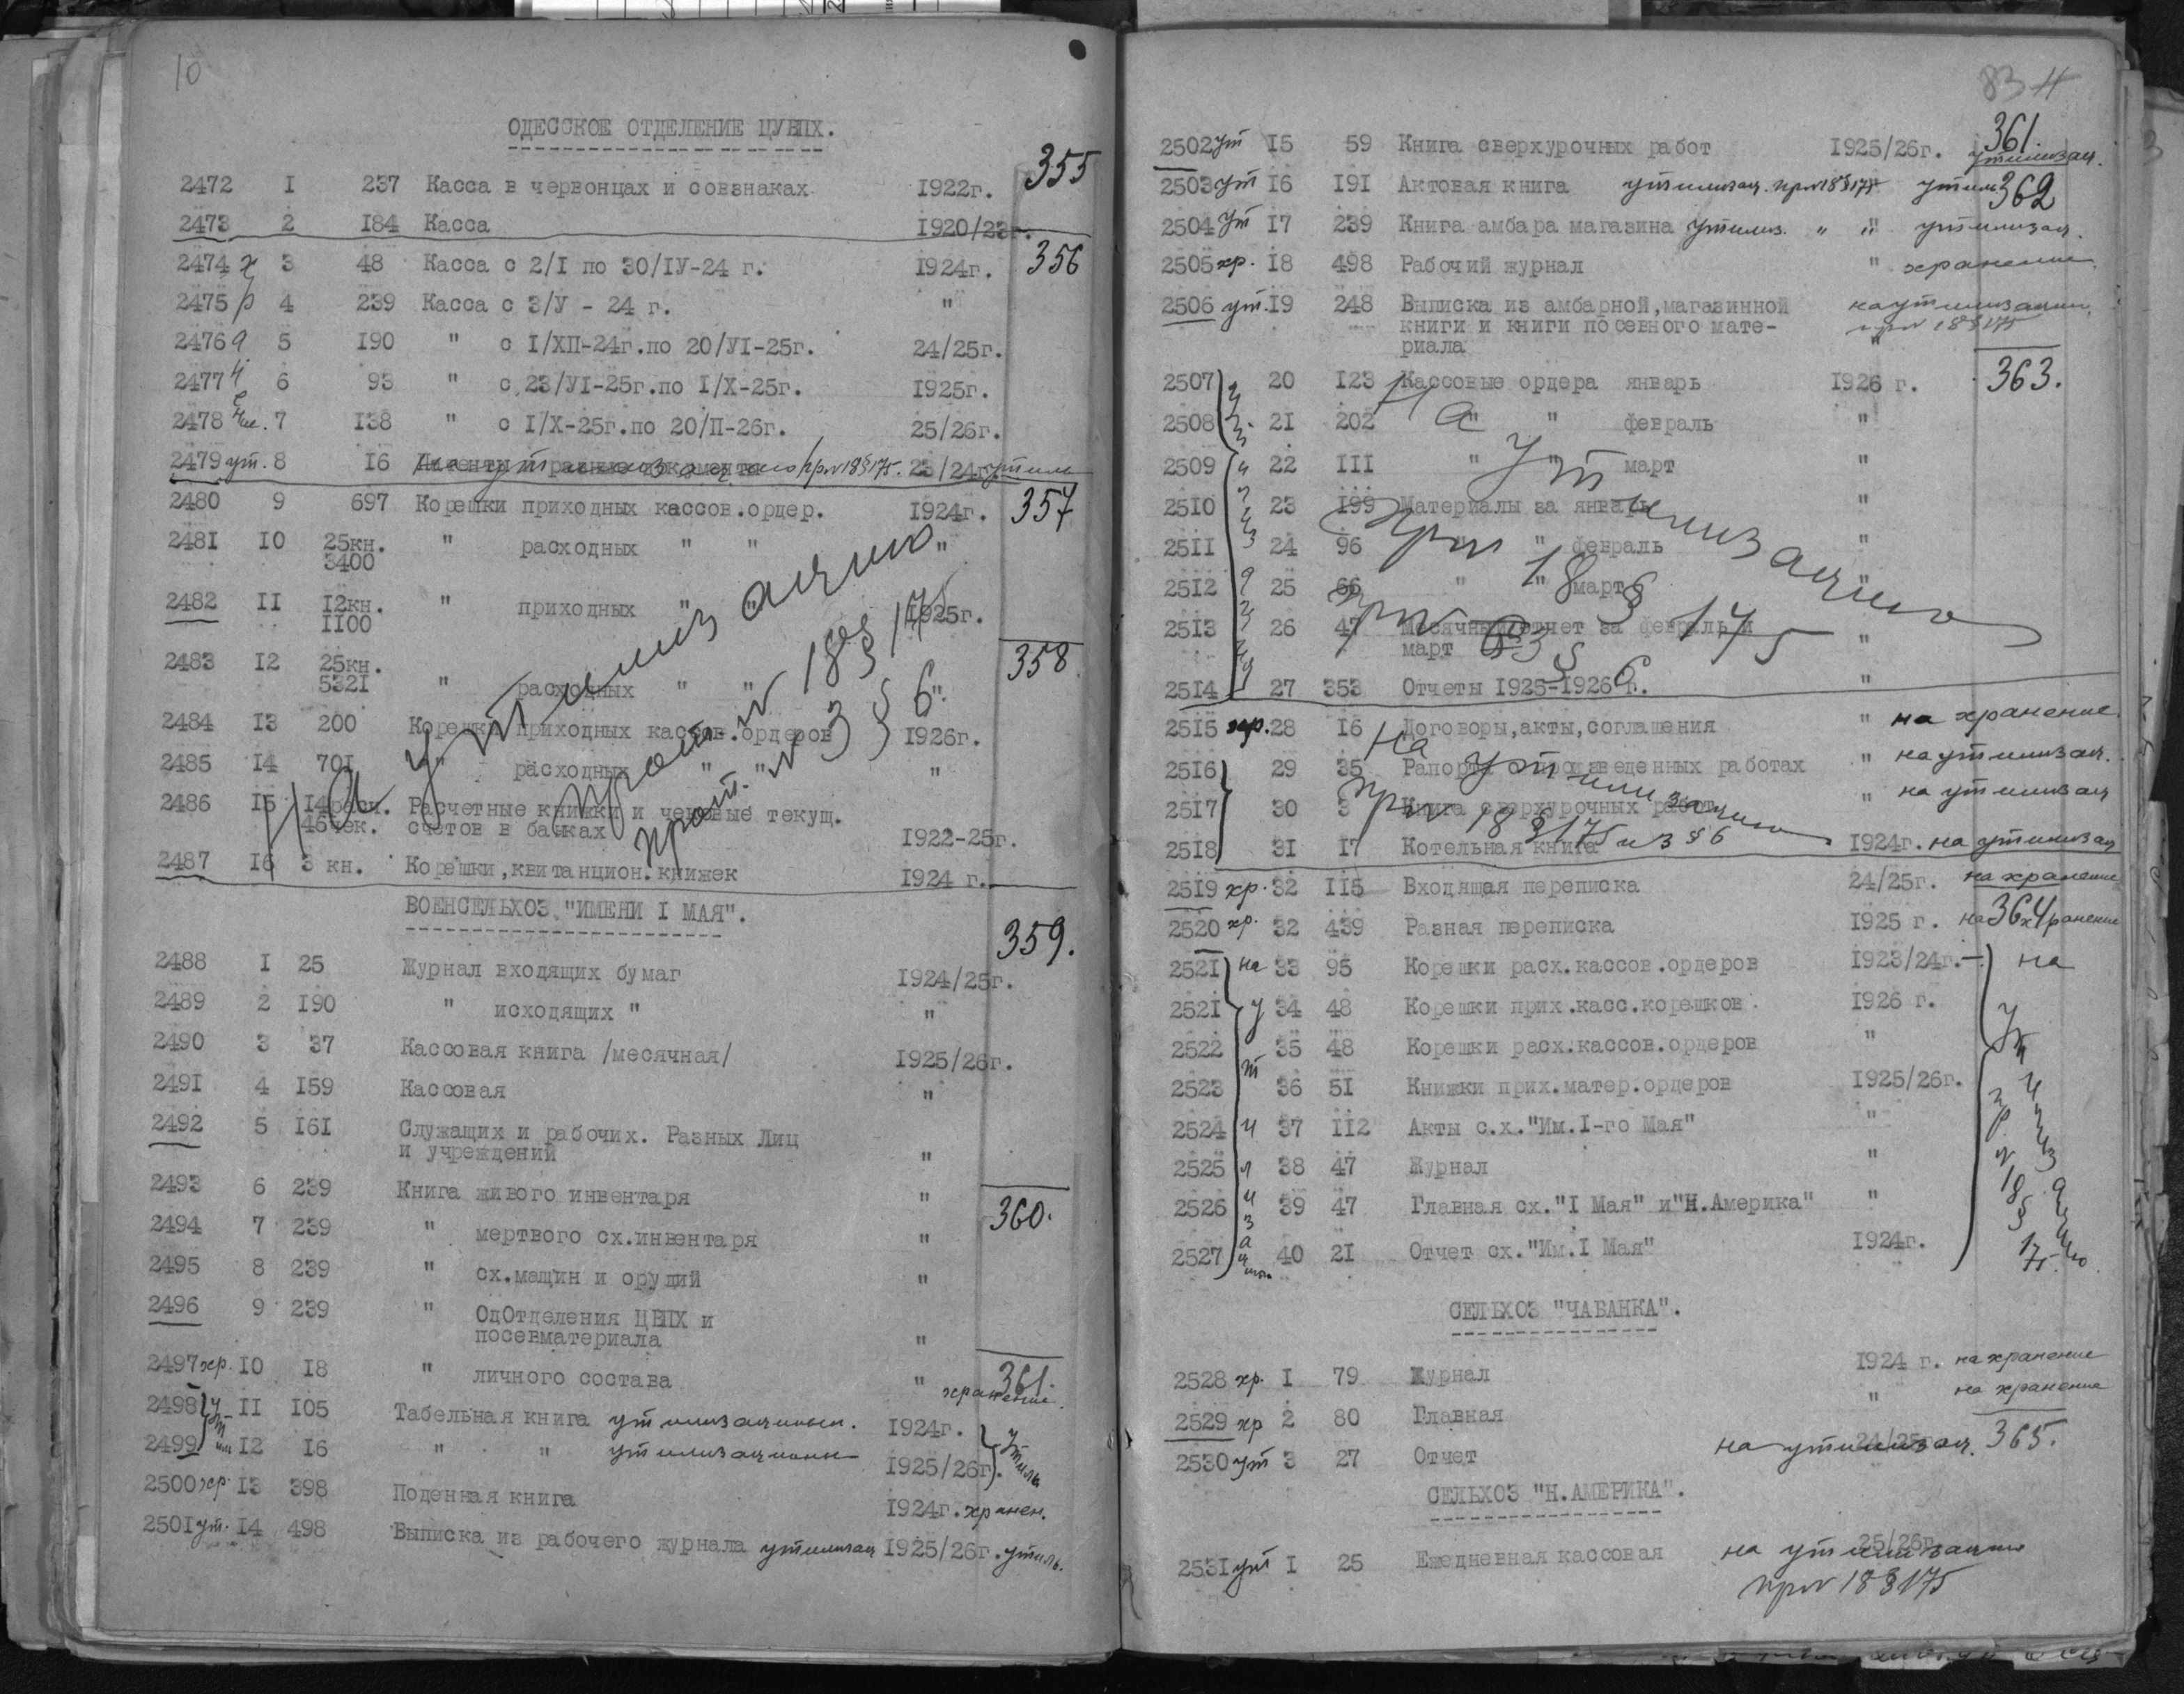 10
ОДЕССКОЕ ОТДЕЛЕНИЕ ЦУВПХ.
355
2472 I 237 Касса в червонцах и совзнаках 1922г.
2473 2 184 Касса 1920/23г.
356
2474 3 48 Касса с 2/I по 30/IУ-24 г. 1924г.
2475 4 239 Касса с 3/У - 24 г. "
2476 5 190 " с I/ХП-24г.по 20/УI-25г. 24/25г.
2477 6 93 " с 23/УI-25г.по I/Х-25г. 1925г.
2478 7 138 " с I/Х-25г.по 20/П-26г. 25/26г.
хранение
2479 ут. 8 16 на утилизацию пр.№18§175. 23/24г. утиль
357
2480 9 697 Корешки приходных кассов.ордер. 1924г.
2481 10 25кн. " расходных " " "
3400
2482 11 12кн. " приходных " " 1925г.
1100
358
2483 12 25кн.
5321 " расходных " " "
2484 13 200 Корешки приходных кассов.ордеров 1926г.
2485 14 701 " расходных " " "
2486 15 14расч. Расчетные книжки и чековые текущ.
46чек. счетов в банках 1922-25г.
2487 16 3 кн. Корешки,квитанцион.книжек 1924 г.
На утилизацию
прот. № 18 § 175
прот. № 3 § 6
ВОЕНСЕЛЬХОЗ "ИМЕНИ I МАЯ".
359.
2488 I 25 Журнал входящих бумаг 1924/25г.
2489 2 190 " исходящих " "
2490 3 37 Кассовая книга /месячная/ 1925/26г.
2491 4 159 Кассовая "
2492 5 161 Служащих и рабочих. Разных Лиц
и учреждений "
360.
2493 6 239 Книга живого инвентаря "
2494 7 239 " мертвого сх.инвентаря "
2495 8 239 " сх.машин и орудий "
2496 9 239 " ОдОтделения ЦВПХ и
посевматериала "
361.
2497 хр. 10 18 " личного состава " хранение.
2498 ут 11 105 Табельная книга 1924г. утиль
2499 12 16 " " 1925/26г.
2500 хр. 13 398 Поденная книга 1924г. хранен.
2501 ут. 14 498 Выписка из рабочего журнала утилизац 1925/26г. утиль.
83
361.
2502 ут 15 59 Книга сверхурочных работ 1925/26г. утилизац.
2503 ут 16 191 Актовая книга утилизац. пр№18§175 " утиль 362
2504 ут 17 239 Книга амбара магазина утилиз. " " утилизац.
2505 хр. 18 498 Рабочий журнал " хранение.
2506 ут. 19 248 Выписка из амбарной,магазинной на утилизацию.
книги и книги посевного мате- пр№ 18§175
риала "
363.
2507 20 123 Кассовые ордера январь 1926 г.
2508 21 202 " " февраль "
2509 22 111 " " март "
2510 23 199 Материалы за январь "
2511 24 96 " " февраль "
2512 25 66 " " март "
2513 26 47 Месячный отчет за февраль и "
март
2514 27 353 Отчеты 1925-1926 г. "
утилизацию
На утилизацию
пр№ 18 § 175
пр№ 3 § 6
2515 хр. 28 16 Договоры,акты,соглашения " на хранение.
2516 29 35 Рапорта о произведенных работах " на утилизац.
2517 30 3 Книга сверхурочных работ " на утилизац
2518 31 17 Котельная книга 1924г. на утилизац
На утилизацию
пр№ 18 §175 и 3 § 6
2519 хр. 32 115 Входящая переписка 24/25г. на хранение
364
2520 хр. 32 439 Разная переписка 1925 г. на хранение
2521 33 95 Корешки расх.кассов.ордеров 1923/24г.
2521 34 48 Корешки прих.касс.корешков. 1926 г.
2522 35 48 Корешки расх.кассов.ордеров "
2523 36 51 Книжки прих.матер.ордеров 1925/26г.
2524 37 112 Акты с.х."Им.I-го Мая" "
2525 38 47 Журнал "
2526 39 47 Главная сх."I Мая" и"Н.Америка" "
2527 40 21 Отчет сх."Им.I Мая" 1924г.
на утилизацию
на утилизацию
пр № 18 § 175.
СЕЛЬХОЗ "ЧАБАНКА".
2528 хр. I 79 Журнал 1924 г. на хранение
2529 хр 2 80 Главная " на хранение
365.
2530 ут 3 27 Отчет 24/25г. на утилизац.
СЕЛЬХОЗ "Н.АМЕРИКА".
2531 ут I 25 Ежедневная кассовая 25/26г. на утилизацию
пр№ 18§175